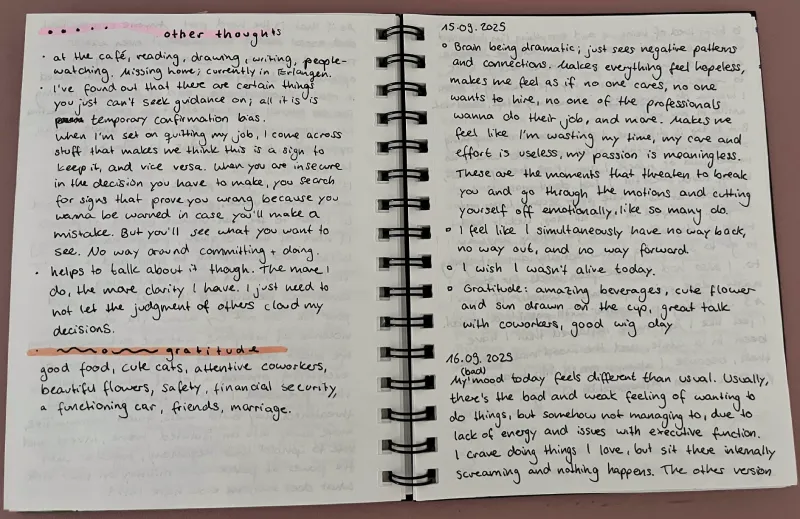 other thoughts
• at the café, reading, drawing, writing, people-
watching. Missing home; currently in Erlangen.
• I've found out that there are certain things
you just can't seek guidance on; all it is is
temporary confirmation bias.
When I'm set on quitting my job, I come across
stuff that makes me think this is a sign to
keep it, and vice versa. When you are insecure
in the decision you have to make, you search
for signs that prove you wrong because you
wanna be warned in case you'll make a
mistake. But you'll see what you want to
see. No way around committing + doing.
• helps to talk about it though. The more I
do, the more clarity I have. I just need to
not let the judgment of others cloud my
decisions.
gratitude
good food, cute cats, attentive coworkers,
beautiful flowers, safety, financial security,
a functioning car, friends, marriage.
15.09.2025
• Brain being dramatic; just sees negative patterns
and connections. Makes everything feel hopeless,
makes me feel as if no one cares, no one
wants to hire, no one of the professionals
wanna do their job, and more. Makes me
feel like I'm wasting my time, my care and
effort is useless, my passion is meaningless.
These are the moments that threaten to break
you and go through the motions and cutting
yourself off emotionally, like so many do.
• I feel like I simultaneously have no way back,
no way out, and no way forward.
• I wish I wasn't alive today.
• Gratitude: amazing beverages, cute flower
and sun drawn on the cup, great talk
with coworkers, good wig day
16.09.2025
My (bad) mood today feels different than usual. Usually,
there's the bad and weak feeling of wanting to
do things, but somehow not managing to, due to
lack of energy and issues with executive function.
I crave doing things I love, but sit there internally
screaming and nothing happens. The other version